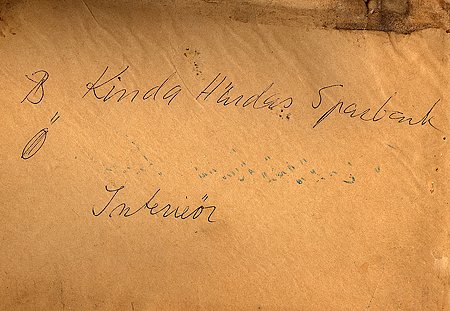 B Kinda Härdas Sparbank
Ö
Interiör